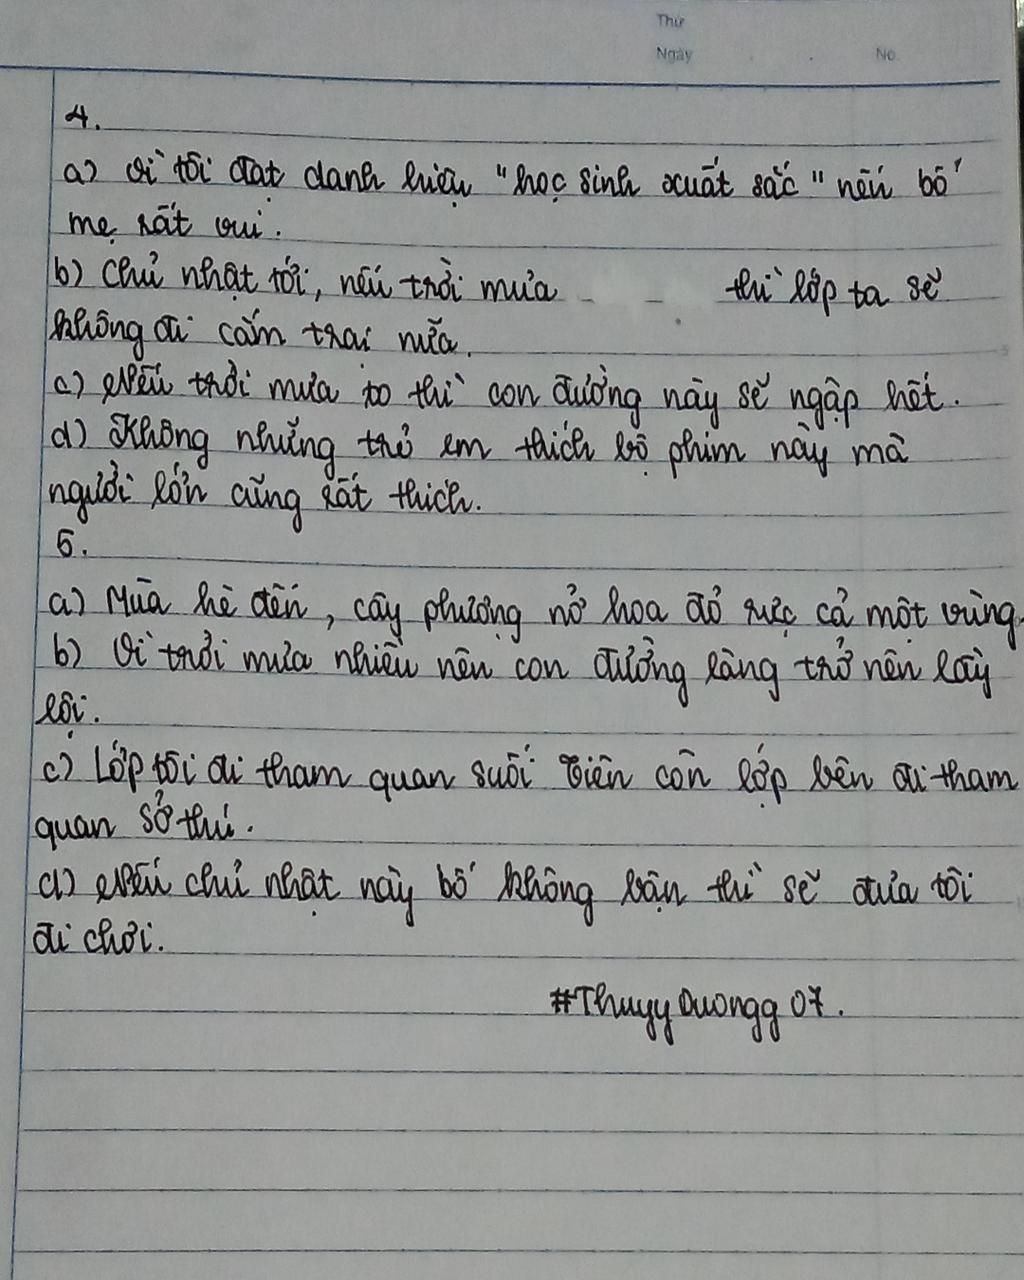 Thứ
Ngày No
4.
a) Vì tôi đạt danh hiệu "học sinh xuất sắc" nên bố
mẹ rất vui.
b) Chủ nhật tới, nếu trời mưa thì lớp ta sẽ
không đi cắm trại nữa.
c) Nếu trời mưa to thì con đường này sẽ ngập hết.
d) Không những trẻ em thích bộ phim này mà
người lớn cũng rất thích.
5.
a) Mùa hè đến, cây phượng nở hoa đỏ rực cả một vùng.
b) Vì trời mưa nhiều nên con đường làng trở nên lầy
lội.
c) Lớp tôi đi tham quan suối Tiên còn lớp bên đi tham
quan sở thú.
d) Nếu chủ nhật này bố không bận thì sẽ đưa tôi
đi chơi.
#ThuyyDuongg07.